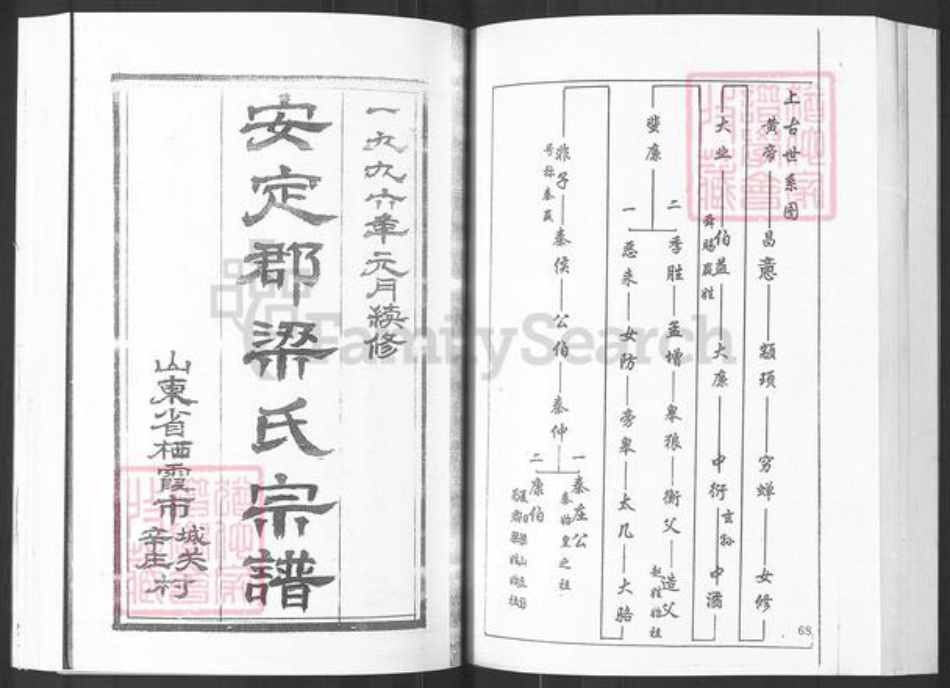 一九九六年元月续修
安定郡梁氏宗譜
山東省栖霞市城关
辛庄村
上古世系图
黄帝 昌意 颛顼 穷蝉 女修
大业 伯益 大廉 中衍 玄孙 中潏
舜赐嬴姓
蜚廉
二 季胜 孟增 皋狼 衡父 造父
赵姓始祖
一 恶来 女防 旁皋 太几 大骆
非子 秦侯 公伯 秦仲
号称秦嬴
一 秦庄公
秦始皇之祖
二 康伯
68
FamilySearch